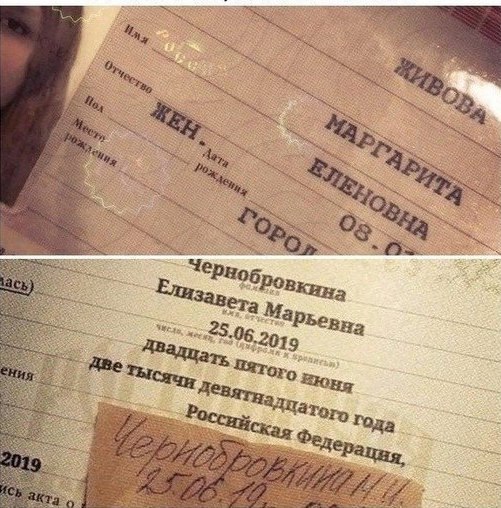 ЖИВОВА
Имя
МАРГАРИТА
Отчество
ЕЛЕНОВНА
Пол
ЖЕН.
Дата
рождения
08.0
Место
рождения
ГОРОД
Чернобровкина
фамилия
лась)
Елизавета Марьевна
имя, отчество
25.06.2019
число, месяц, год (цифрами и прописью)
двадцать пятого июня
ения
две тысячи девятнадцатого года
Российская Федерация,
2019
Чернобровкина М.И.
25.06.19
ись акта о